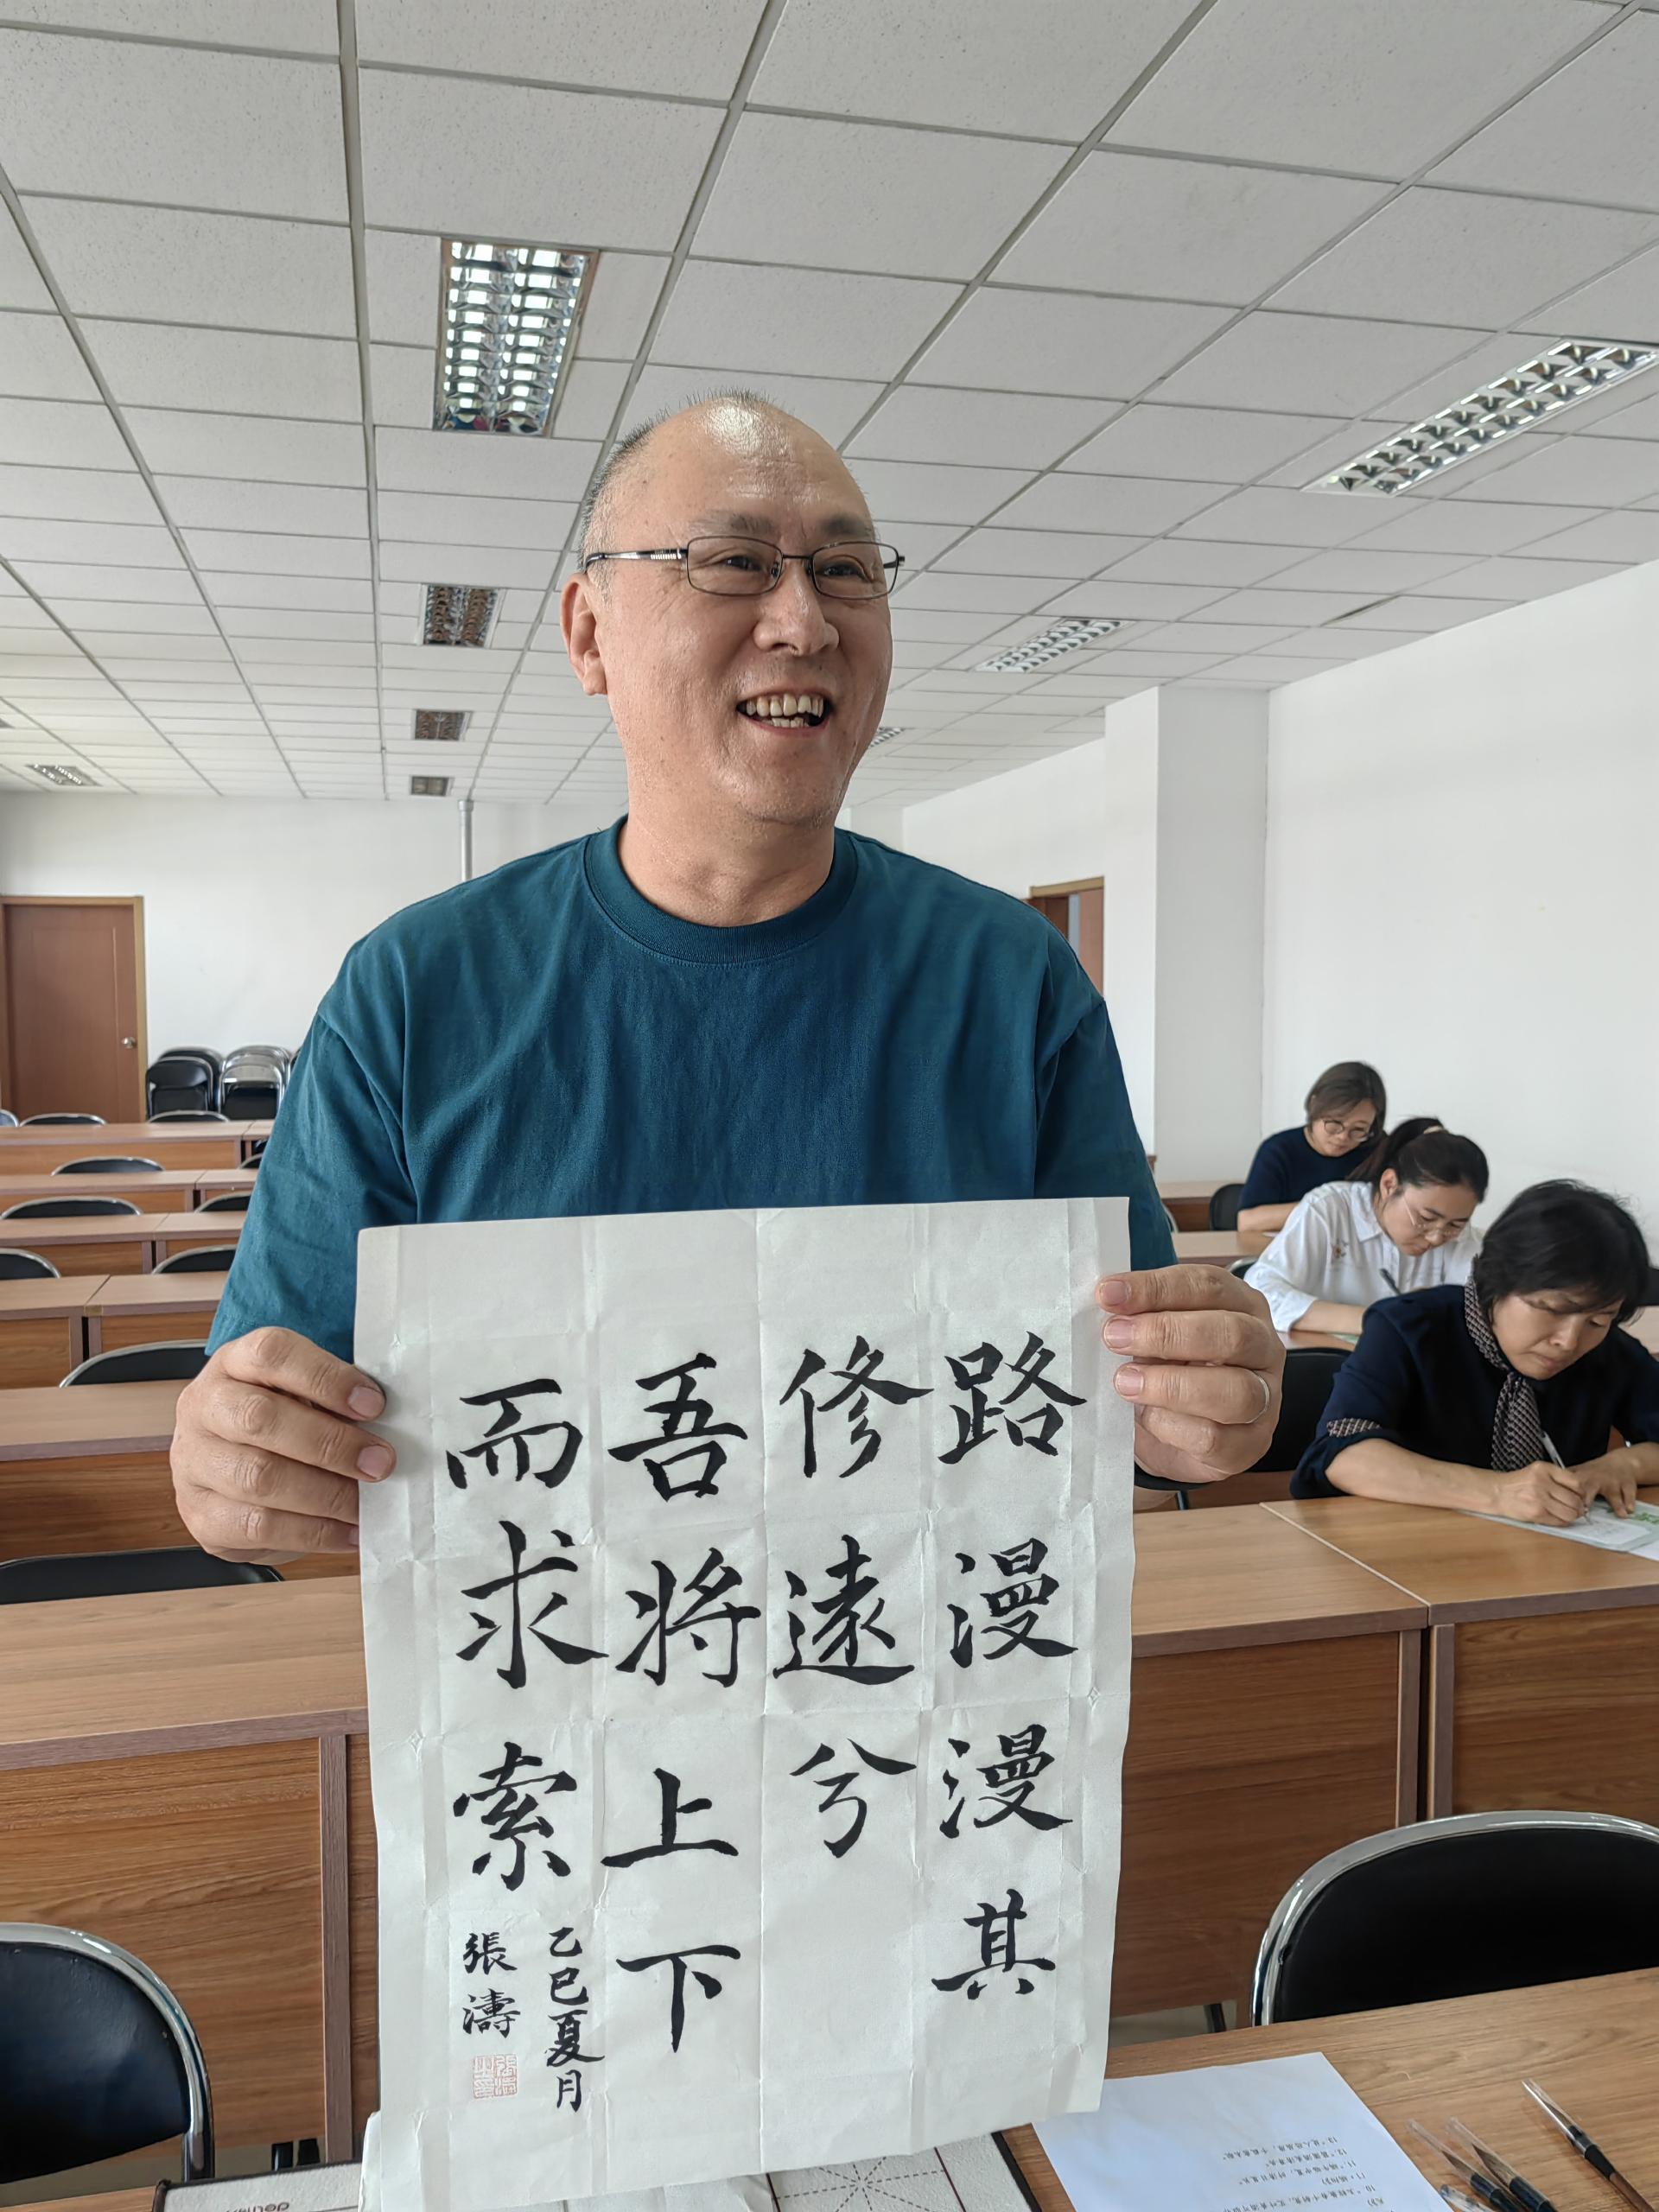 路漫漫其
修遠兮
吾將上下
而求索
乙巳夏月
張濤